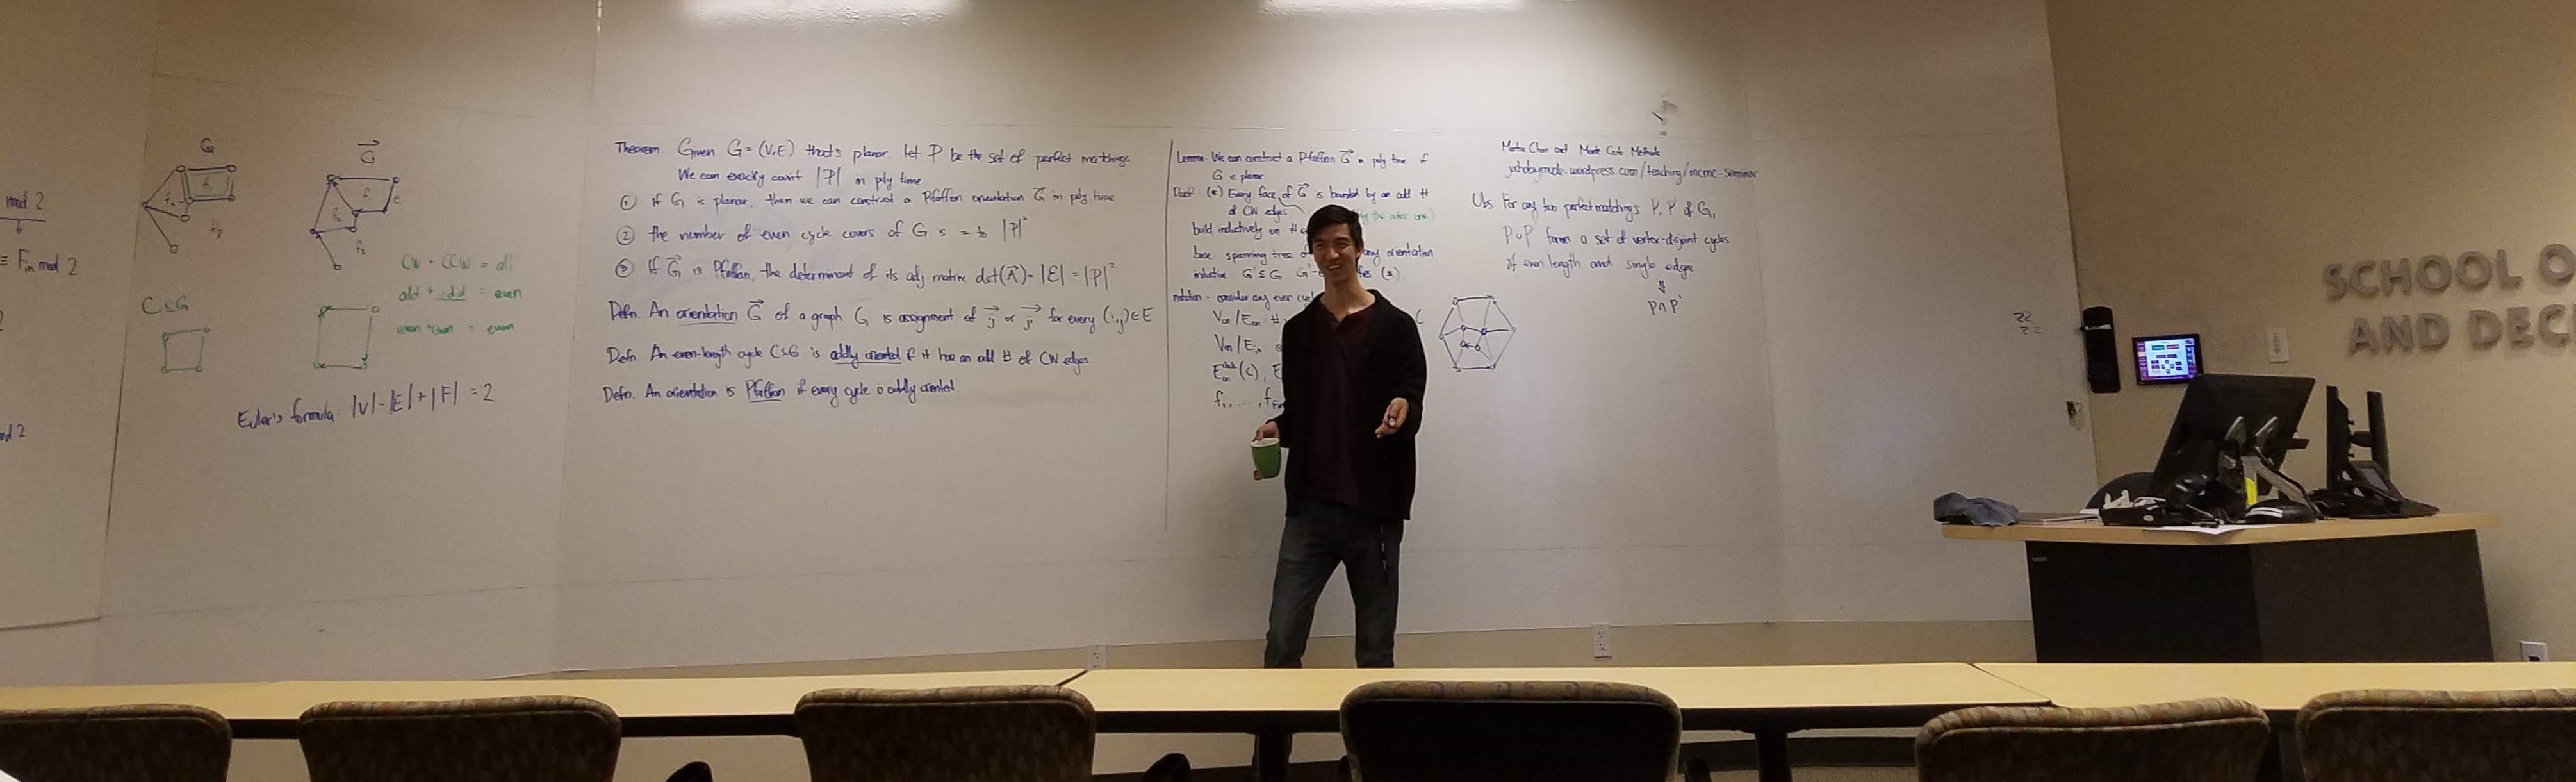 mod 2
≡ F_in mod 2
mod 2
G
f₁
G⃗
f₁
CW + CCW = all
odd + odd = even
even + even = even
C ⊆ G
Euler's formula: |V| - |E| + |F| = 2
Theorem Given G = (V, E) that's planar. Let P be the set of perfect matchings.
We can exactly count |P| in poly time
① if G is planar, then we can construct a Pfaffian orientation G⃗ in poly time
② the number of even cycle covers of G is = to |P|²
③ If G⃗ is Pfaffian, the determinant of its adj matrix det(A⃗) = |E| = |P|²
Defn. An orientation G⃗ of a graph G is assignment of ij⃗ or ji⃗ for every (i,j) ∈ E
Defn. An even-length cycle C ⊆ G is oddly oriented if it has an odd # of CW edges
Defn. An orientation is Pfaffian if every cycle is oddly oriented
Lemma. We can construct a Pfaffian G⃗ in poly time if
G is planar
Proof. (*) Every face of G⃗ is bounded by an odd #
of CW edges the outer one)
build inductively on #
base spanning tree of any orientation
inductive G' ⊆ G (*)
notation - consider any even cycle
V_on/E_on #
V_in/E_in
E_on^clock(C), E
f₁, ..., f_F
Markov Chain and Monte Carlo Methods
joshdaymude.wordpress.com/teaching/mcmc-seminar
Obs. For any two perfect matchings P, P' of G,
P ∪ P' forms a set of vertex-disjoint cycles
of even length and single edges
⇓
P ∩ P'
SCHOOL O
AND DEC